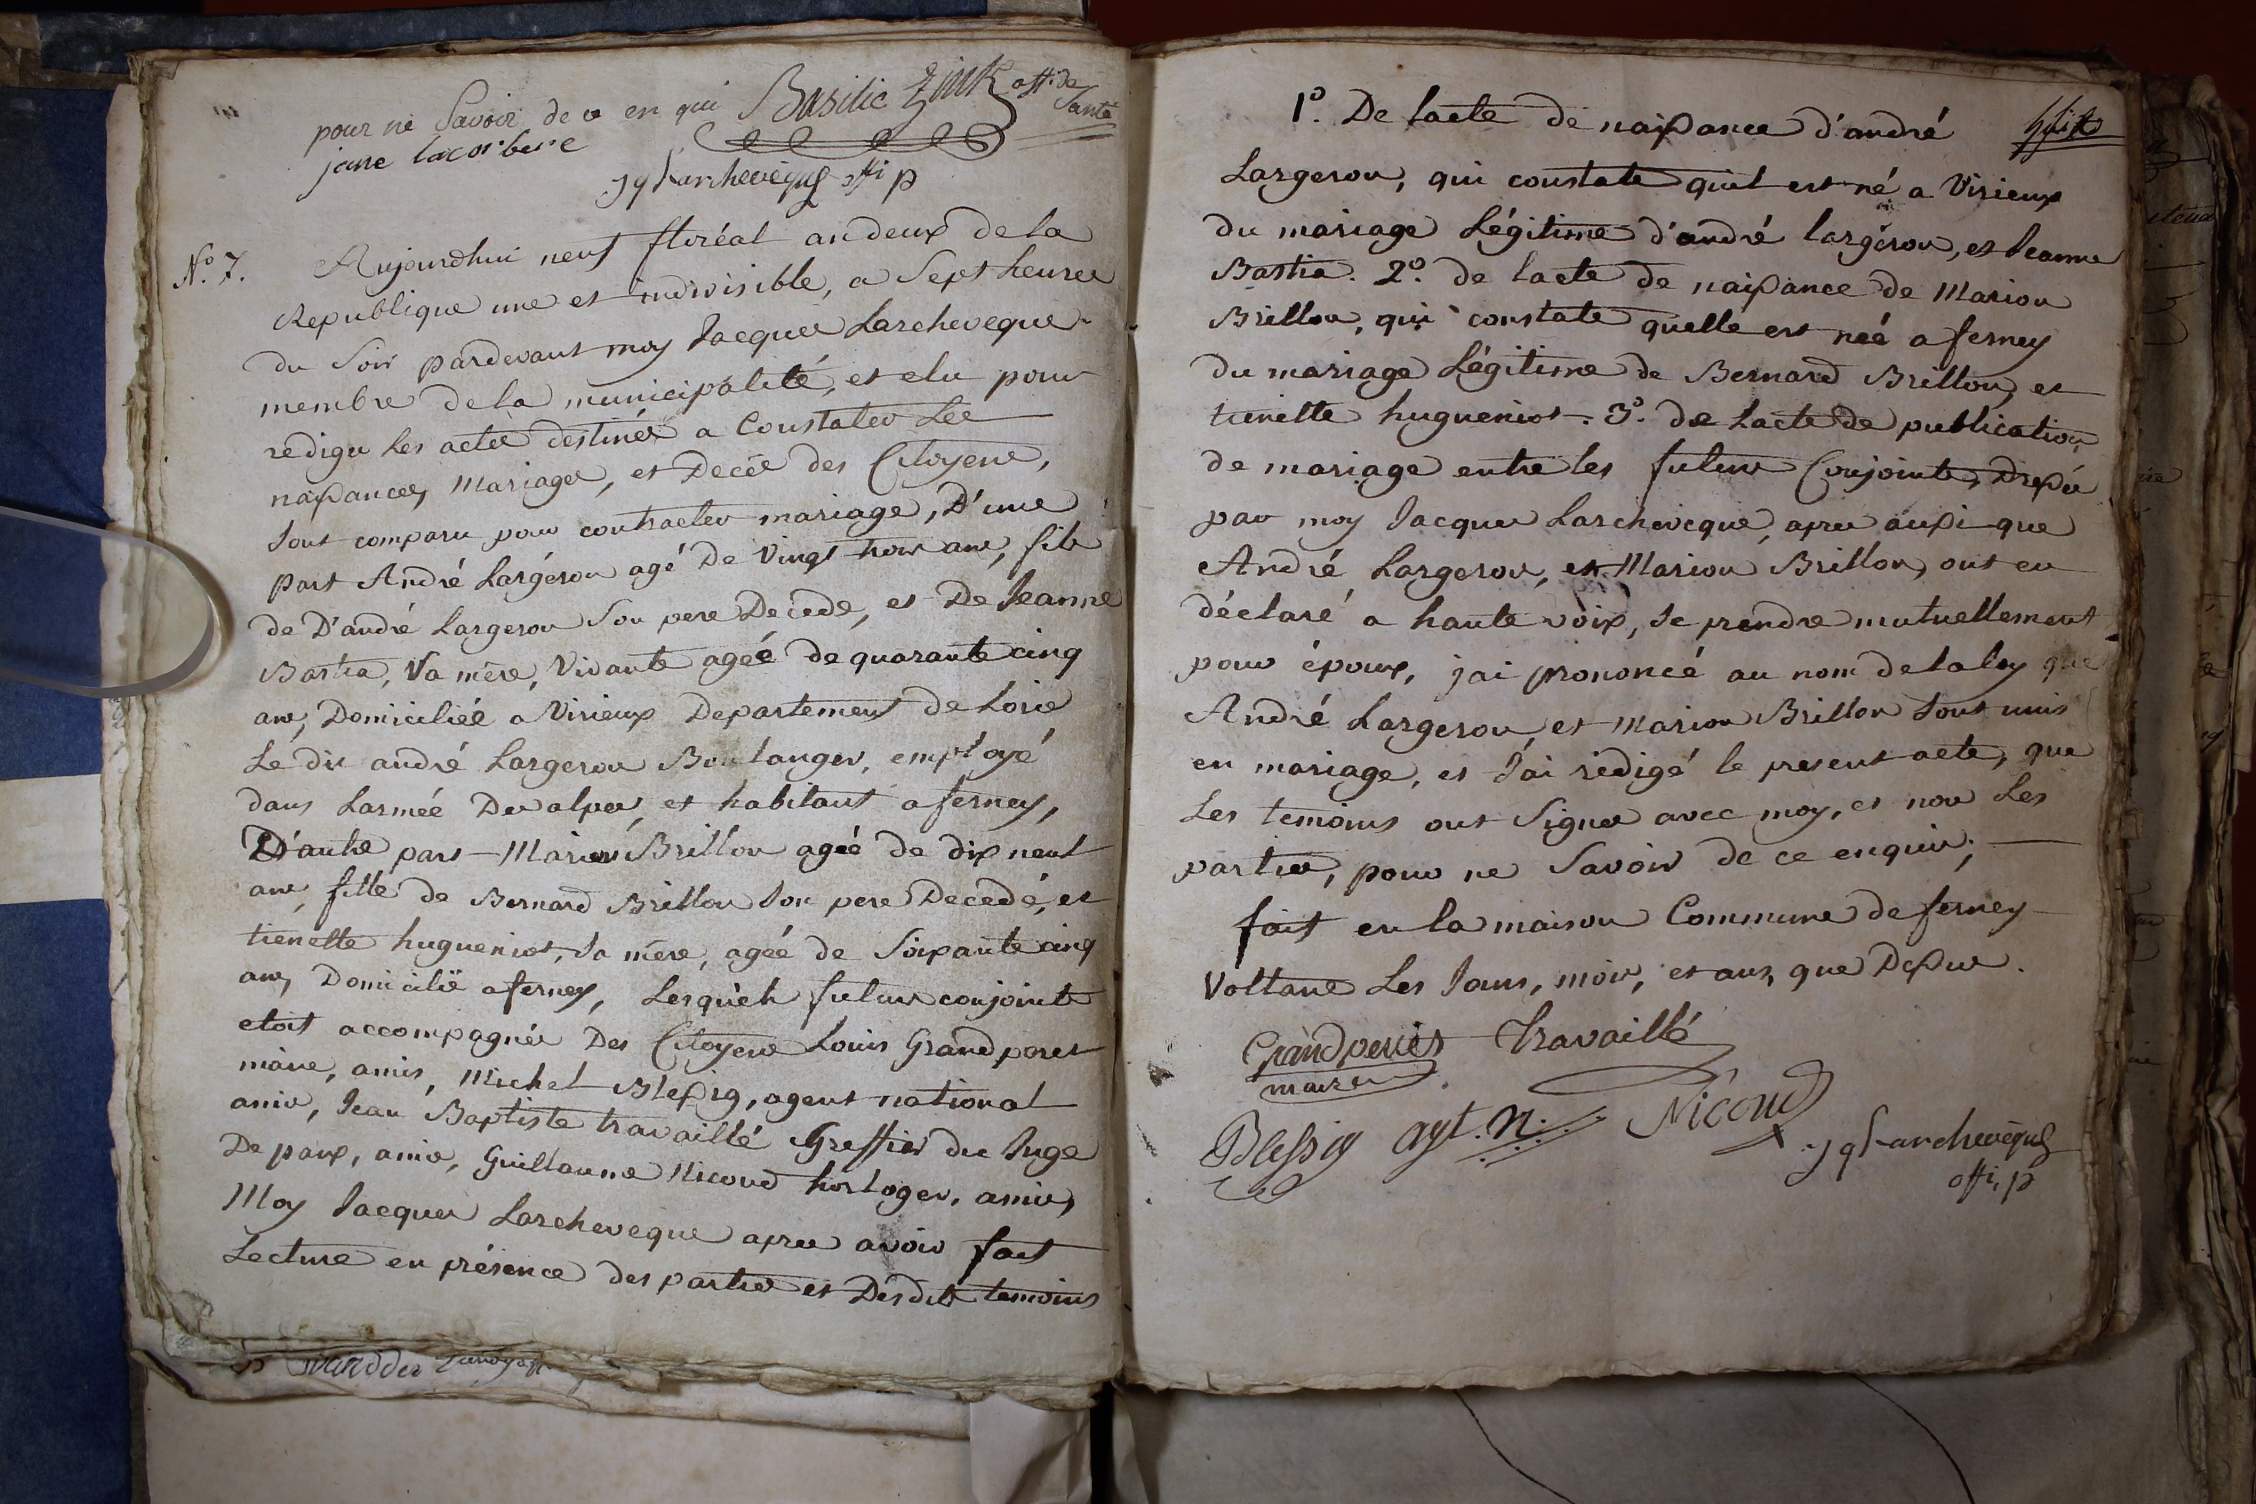 pour ne Savoir de ce en qui Basilic Zink offi. de
Santé
jane lacorbere
jq Larchevêque offi p
N.º 7. Aujourdhui neuf floréal an deux de la
Republique une et indivisible, a Sept heures
du Soir pardevant moy Jacques Larcheveque
membre de la municipalité, et elu pour
rediger les actes destinés a Constater Les
naissances, Mariages, et Decés des Citoyens,
Sont comparu pour contracter mariage, D'une
part André Largeron agé De Vingt trois ans, fils
de D'andré Largeron Son pere Décédé, et De Jeanne
Bastia, Sa mère, Vivante agéé de quarante cinq
ans, Domiciliéé a Virieux Departement de Loire
Le dit andré Largeron Boulanger, employé
dans Larmée Des alpes, et habitant a ferney,
D'autre part Marion Brillon agéé de dix neuf
ans, fille de Bernard Brillon Son pere Decedé, et
tienette hugueniot, Sa mère, agéé de Soixante cinq
ans, Domicilié a ferney, Lesquels futurs conjoints
etoit accompagnés Des Citoyens Louis Grandperet
maire, amis, Michel Blessig, agent national
amis, Jean Baptiste travaillé Greffier du Juge
De paix, amis, Guillaume Nicoud horloger, amis,
Moy Jacques Larcheveque apres avoir fait
Lecture en présence des parties et Desdits temoins
1.º De lacte de naissance d'andré
Largeron, qui constate quil est né a Virieux
du mariage Légitime d'andré largeron, et Jeanne
Bastia. 2.º de lacte de naissance de Marion
Brillon, qui constate quelle est néé a ferney
du mariage Légitime de Bernard Brillon, et
tienette hugueniot. 3.º de Lacte de publication,
de mariage entre les futurs Conjoints, Dressé
par moy Jacques Larcheveque, apres aussi que
André Largeron, et Marion Brillon, ont eu
déclaré a haute voix, Se prendre mutuellement
pour époux, jai prononcé au nom de la loy que
André Largeron, et Marion Brillon Sont unis
en mariage, et Jai rédigé le present acte, que
Les temoins ont Signés avec moy, et non Les
parties, pour ne Savoir de ce enquis;
fait en la maison Commune de ferney
Voltaire Les Jours, mois, et ans, que Dessus.
Grandperret Travaillé
maire
Blessig agt. n. Nicoud
jq Larchevêque
offi, p